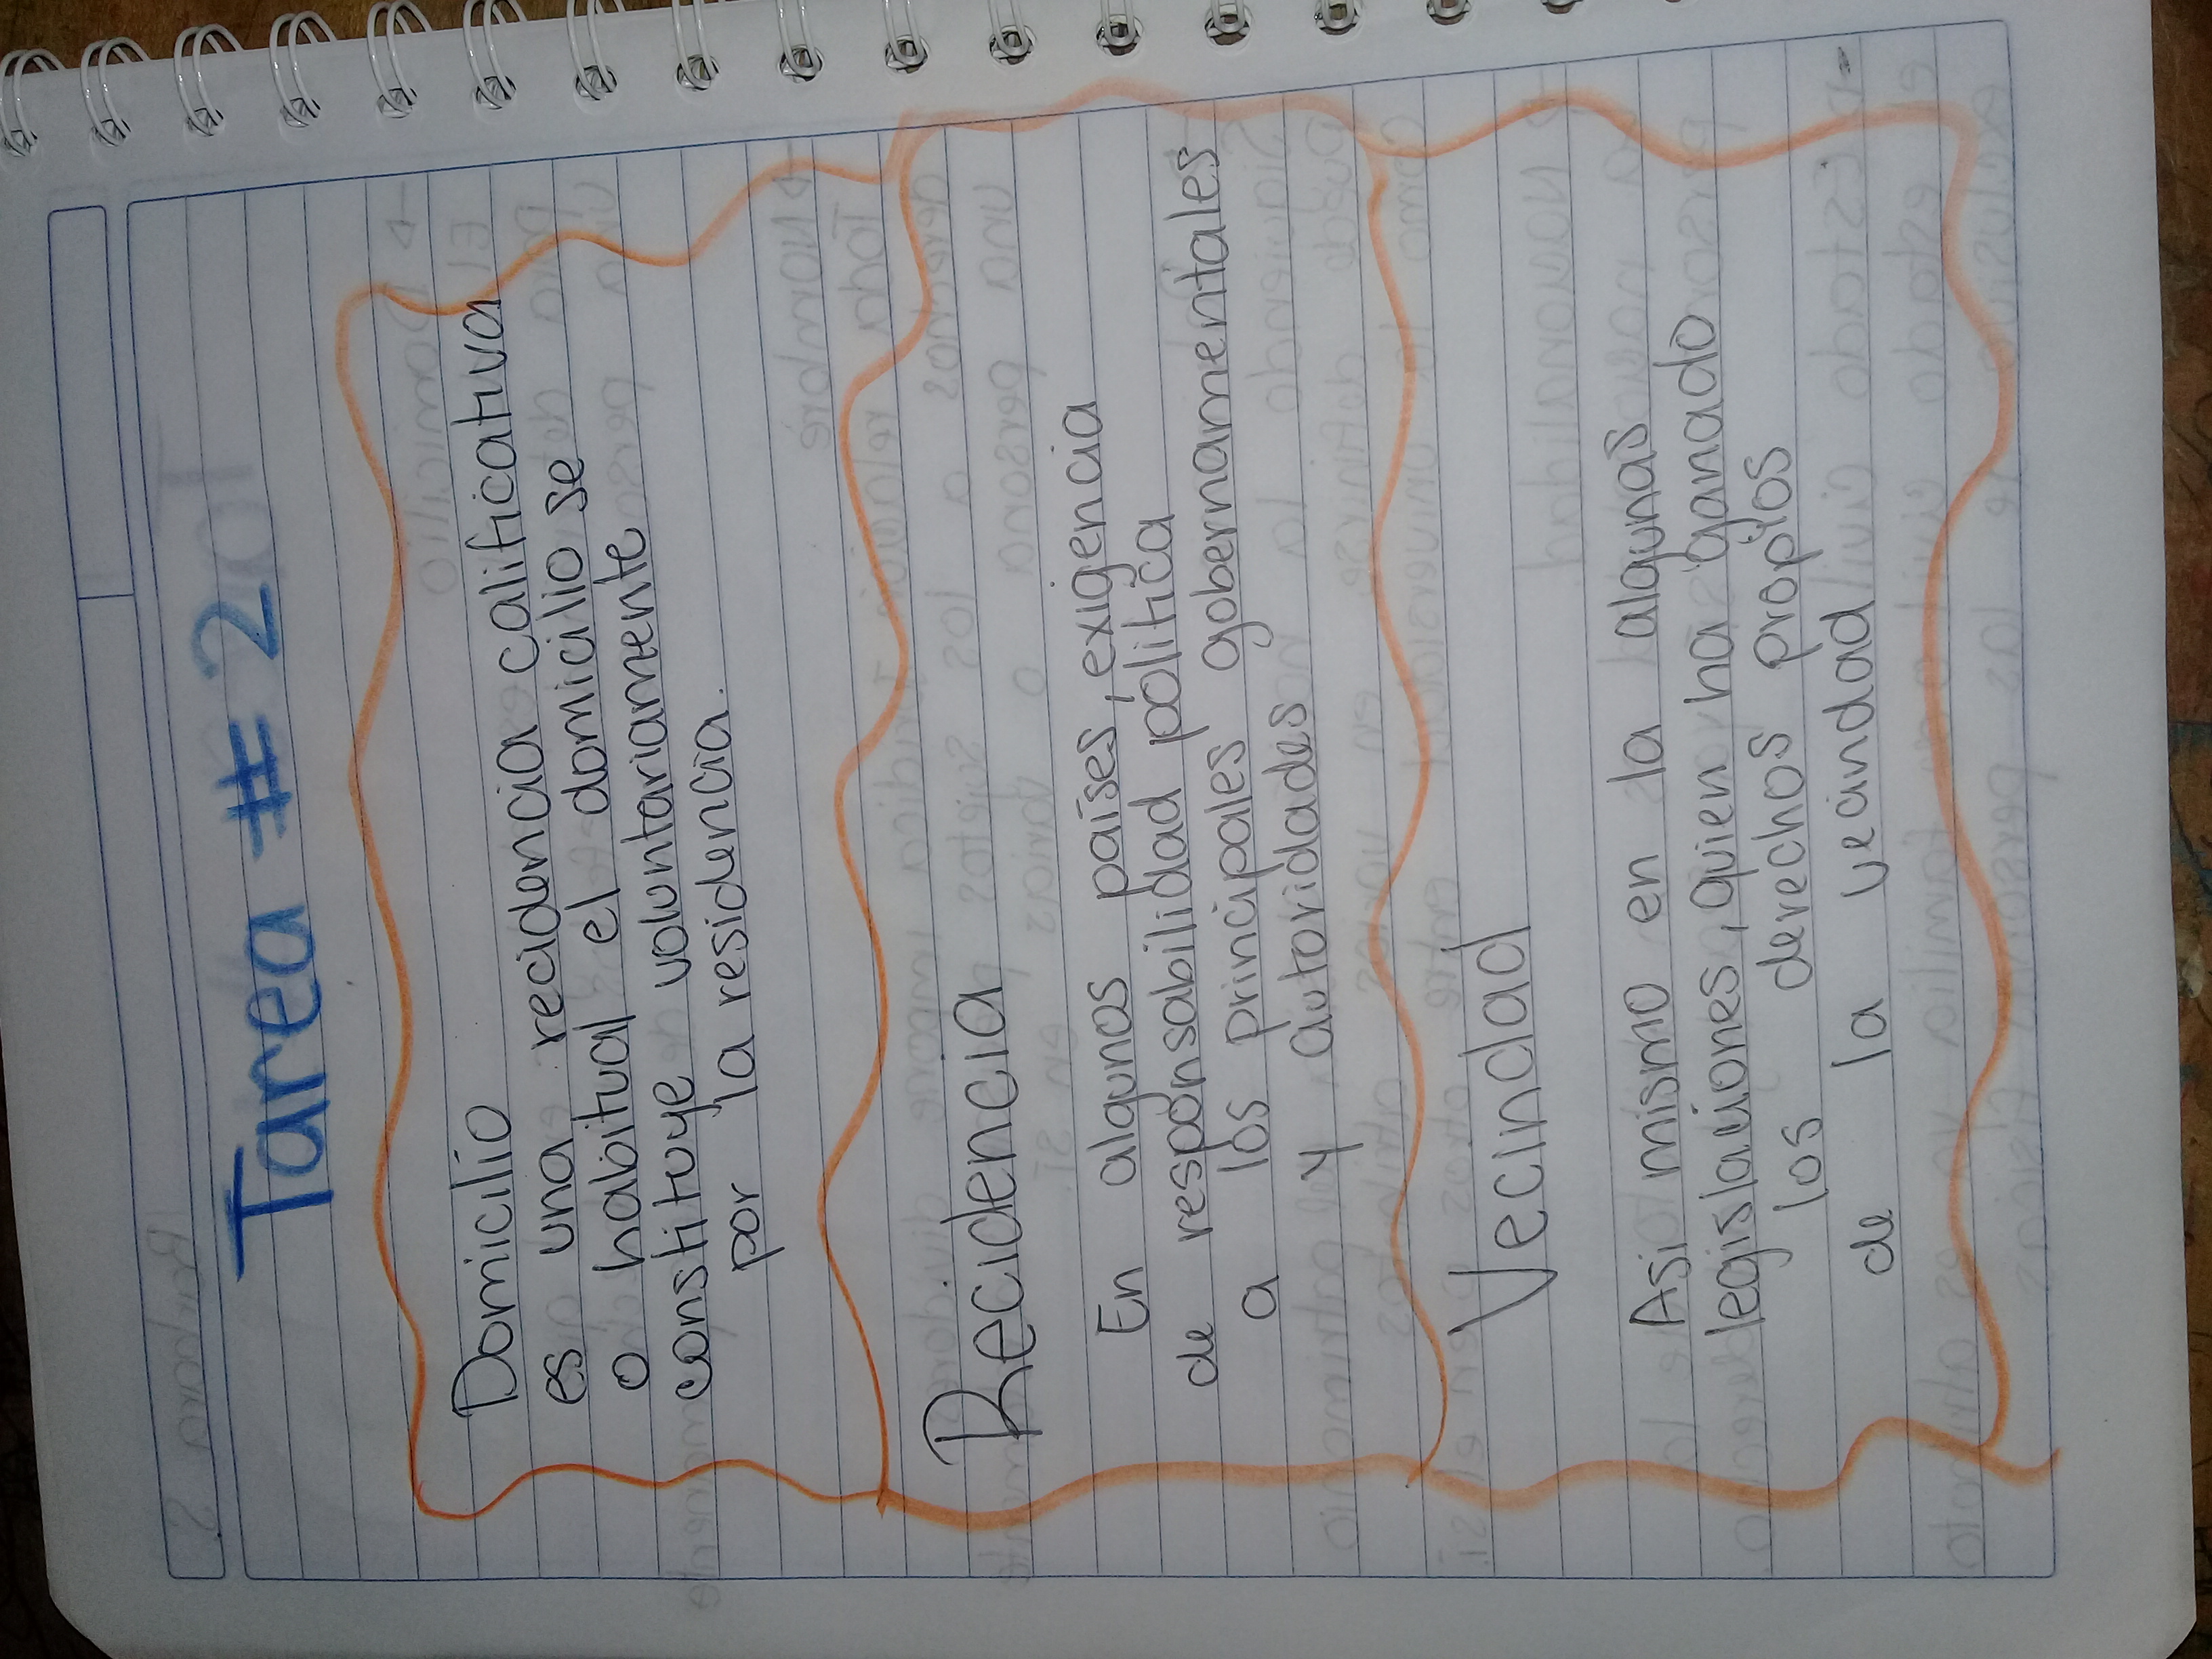 Tarea # 2
Domicilio
es una recidencia calificativa
o habitual el domicilio se
constituye voluntariamente
por la residencia.
Recidencia
En algunos países, exigencia
de responsabilidad politica
a los principales gobernamentales
y autoridades
Vecindad
Asi mismo en la algunas
legislaciones, quien ha ganado
los derechos propios
de la vecindad